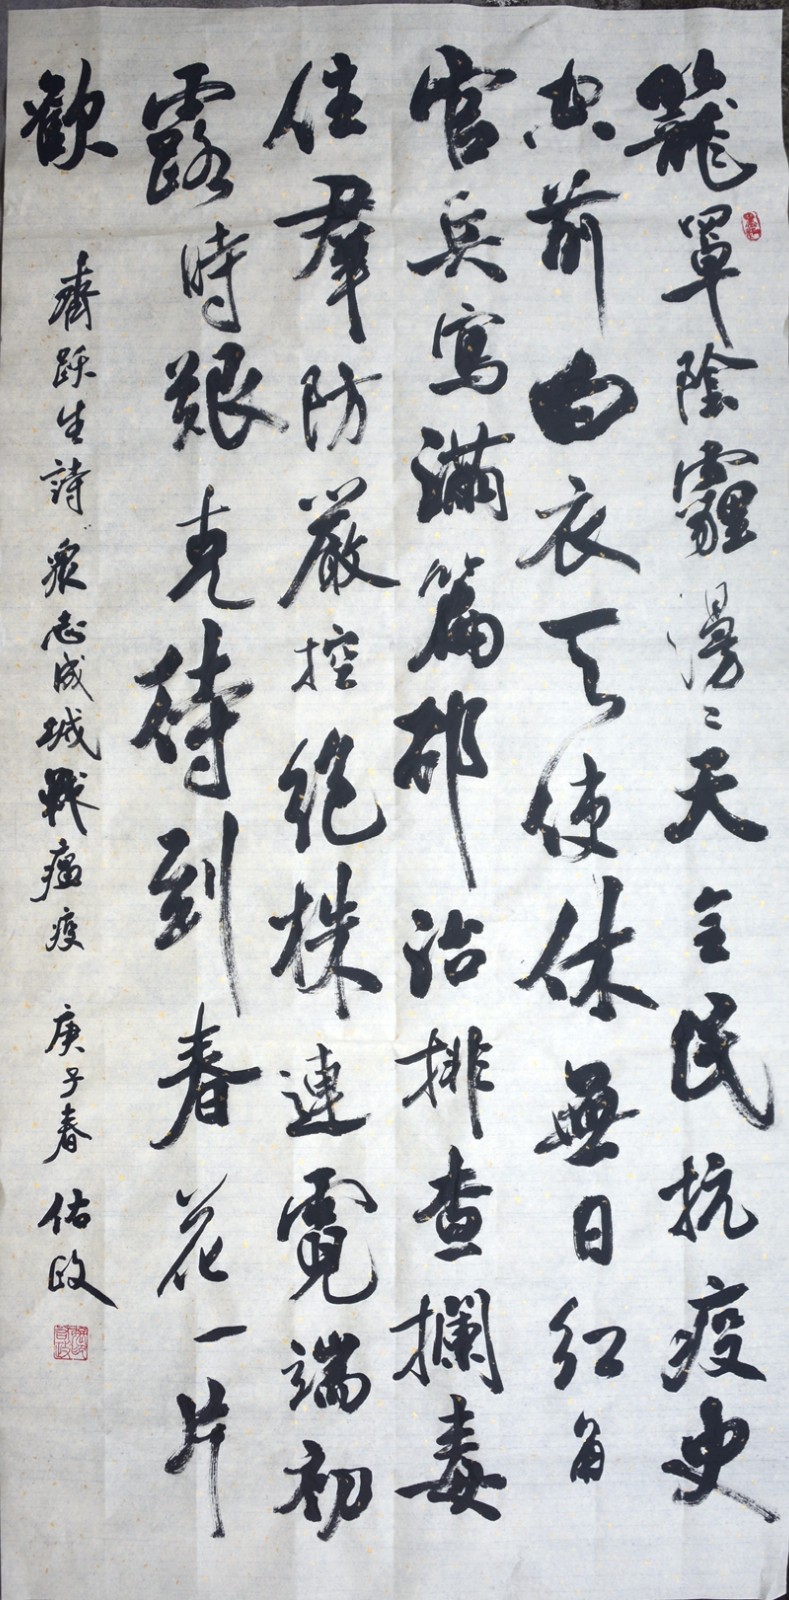 籠罩陰霾漫〻天全民抗疫史
空前白衣天使休無日紅角
官兵寫滿篇治排查攔毒
住羣防嚴控絕株連霓端初
露時艱克待到春花一片
歡
齊跃生詩 衆志成城戰瘟疫 庚子春 佑政